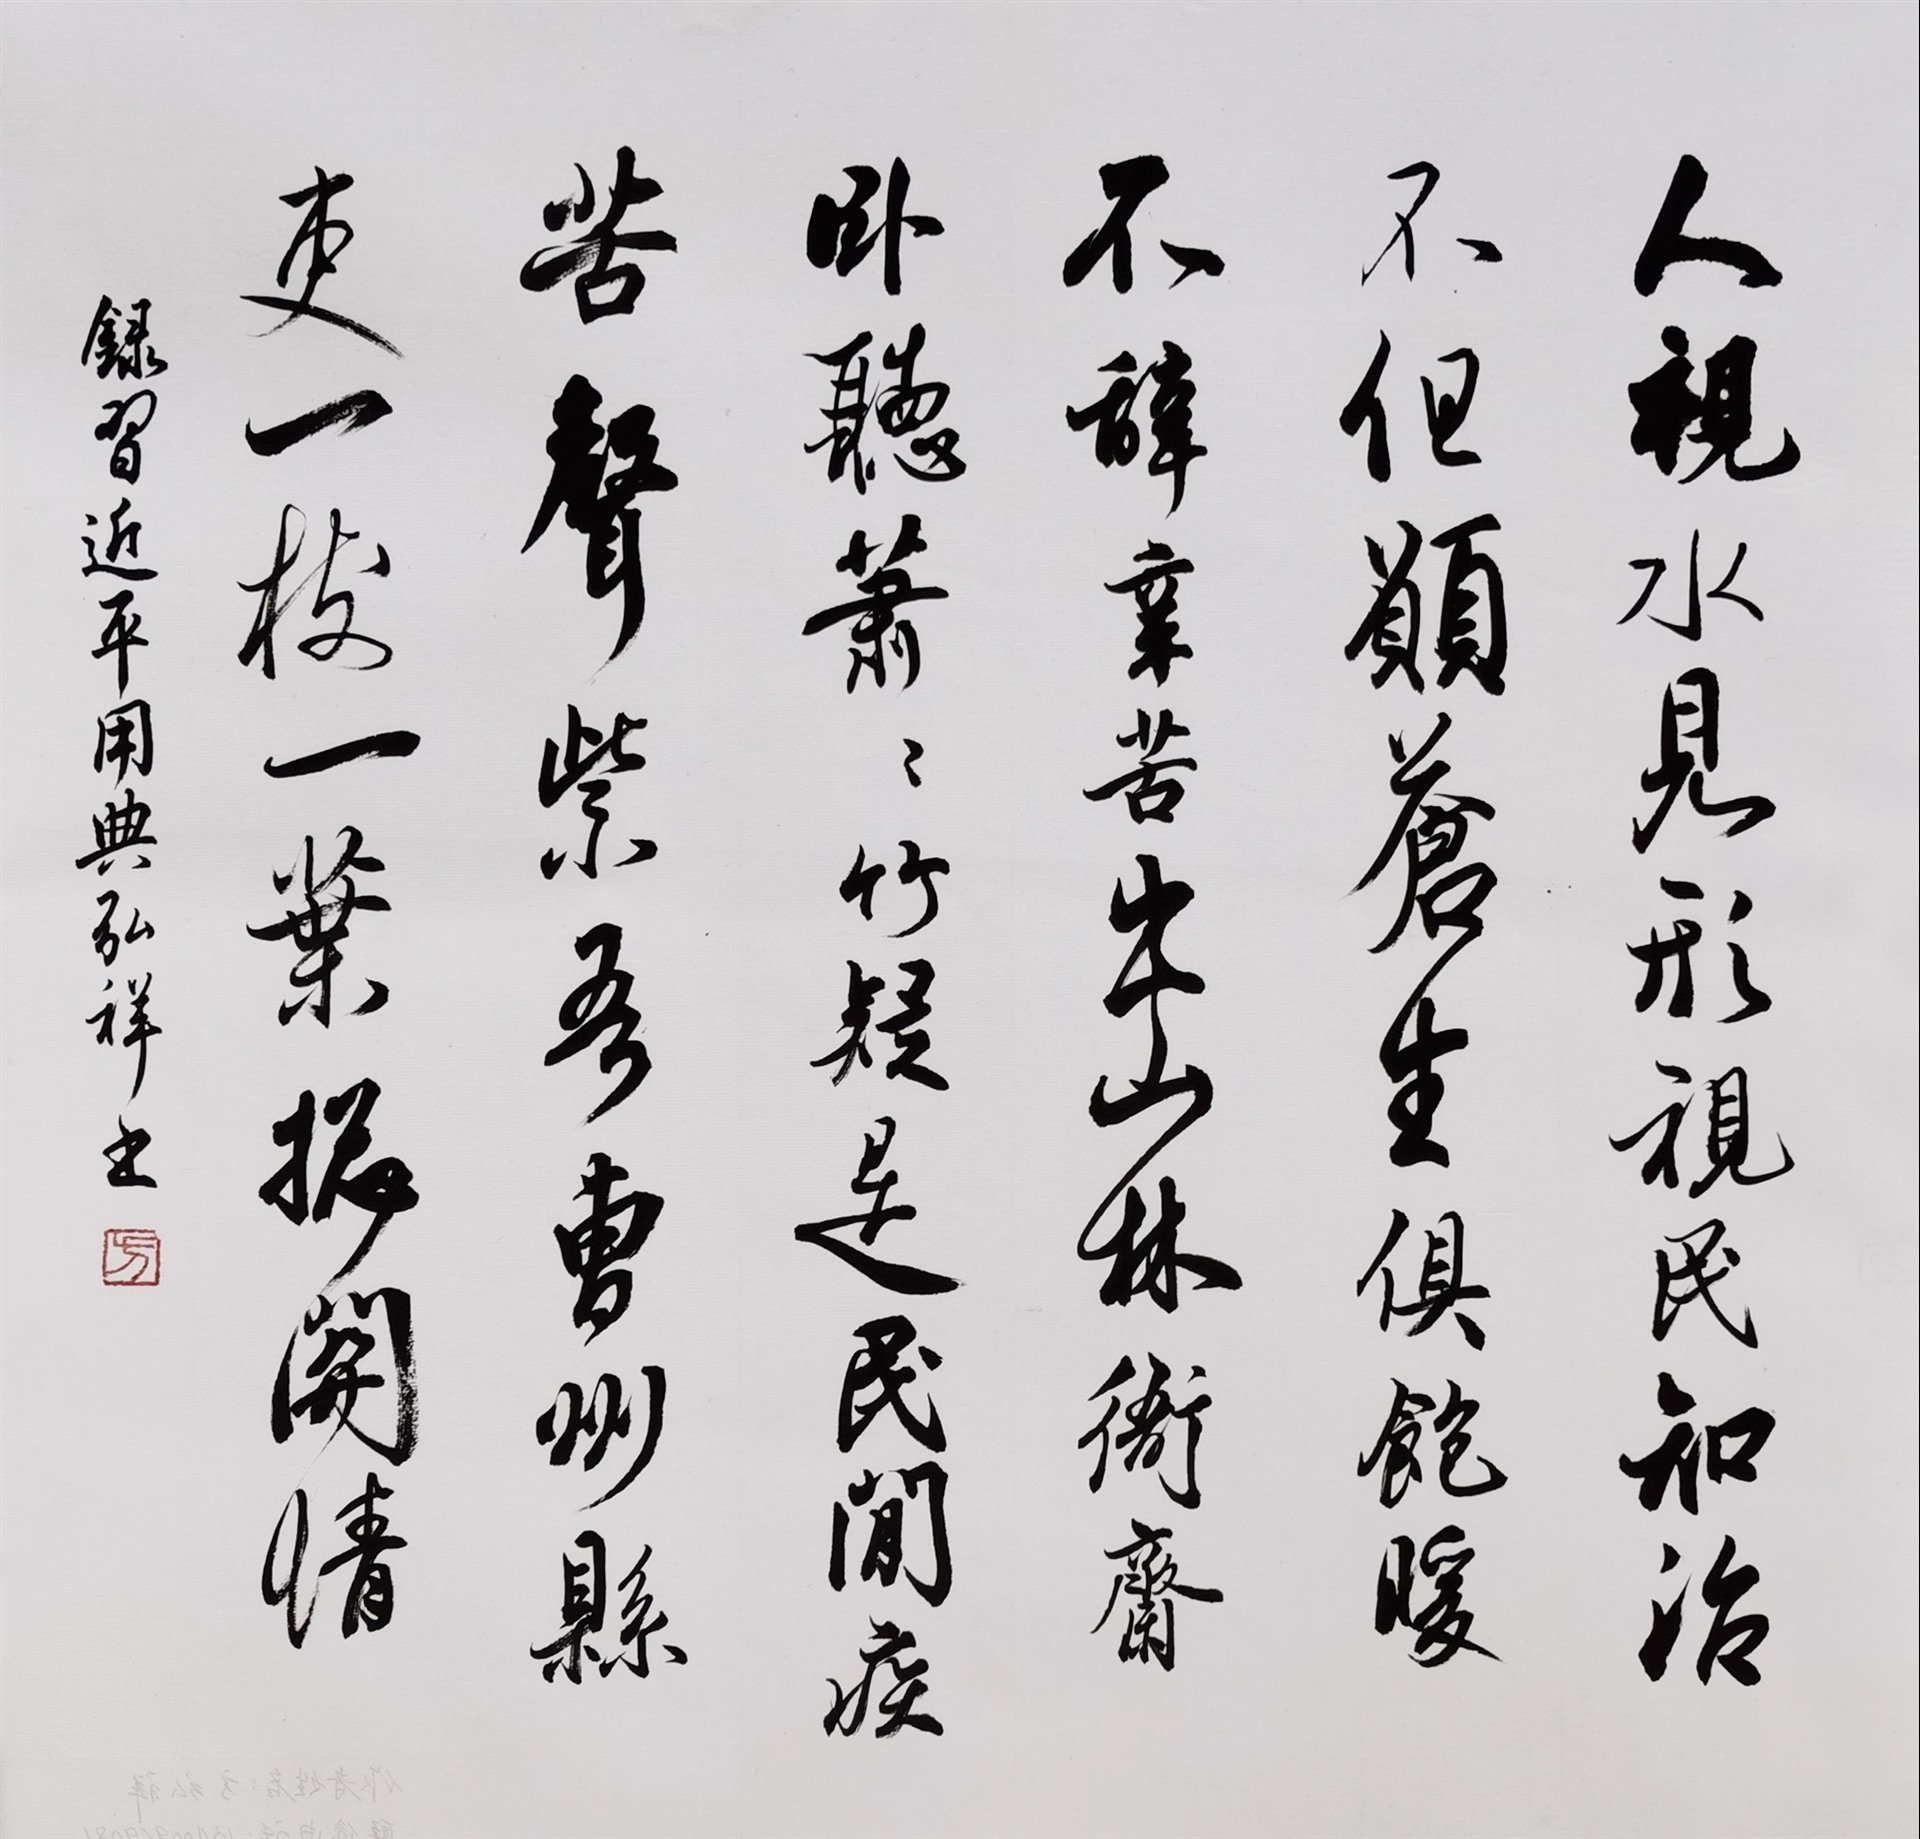 人視水見形視民知治
不但願蒼生俱飽暖
不辭辛苦出山林衙齋
卧聽蕭〻竹疑是民間疾
苦聲些小吾曹州縣
吏一枝一葉揔關情
録習近平用典弘祥书
方
作者姓名：方弘祥